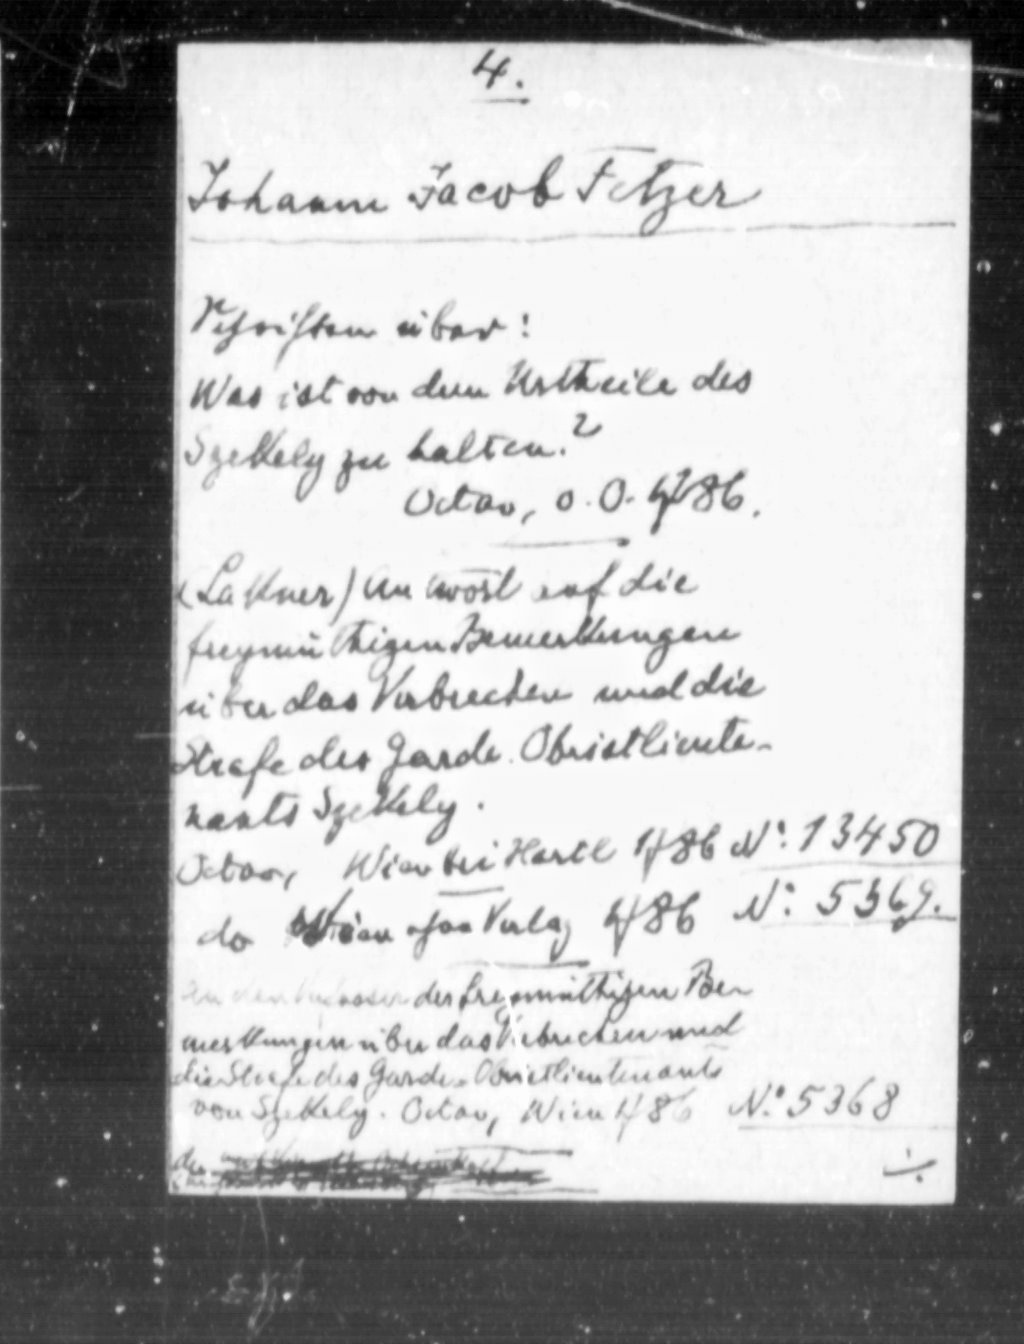 4.
Johann Jacob Fetzer
Schriften über:
Was ist von dem Urtheile des
Szekely zu halten.?
Octav, o. O. 1786.
(Lakner) Antwort auf die
freymüthigen Bemerkungen
über das Verbrechen und die
Strafe des Garde. Obristlieute-
nants Szekely.
Octav, Wien bei Hartl 1786 No. 13450
do Wien Verlag 1786 No. 5369.
An den Verfasser der freymüthigen Be-
merkungen über das Verbrechen und
die Strafe des Garde-Obristlieutenants
von Szekely. Octav, Wien 1786 No. 5368